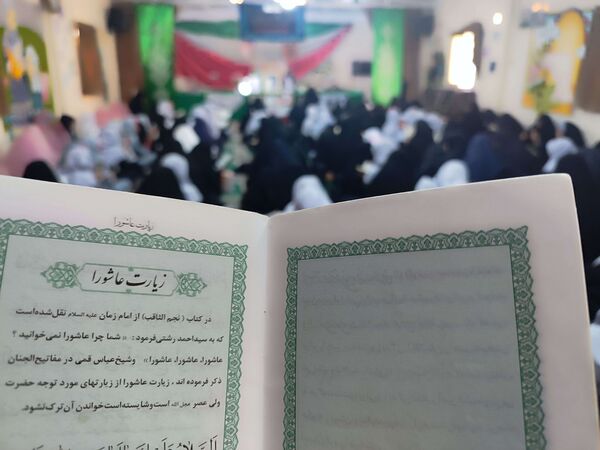 زیارت عاشورا
زیارت عاشورا
در کتاب ( نجم الثاقب) از امام زمان علیه السلام نقل شده‌است
که به سیداحمد رشتی‌فرمود: « شما چرا عاشورا نمی‌خوانید ؟
عاشورا، عاشورا، عاشورا» وشیخ‌عباس قمی در مفاتیح‌الجنان
ذکر فرموده اند ، زیارت عاشورا از زیارتهای مورد توجه حضرت
ولی عصر عجل الله است‌وشایسته‌است‌خواندن آن‌ترک‌نشود.